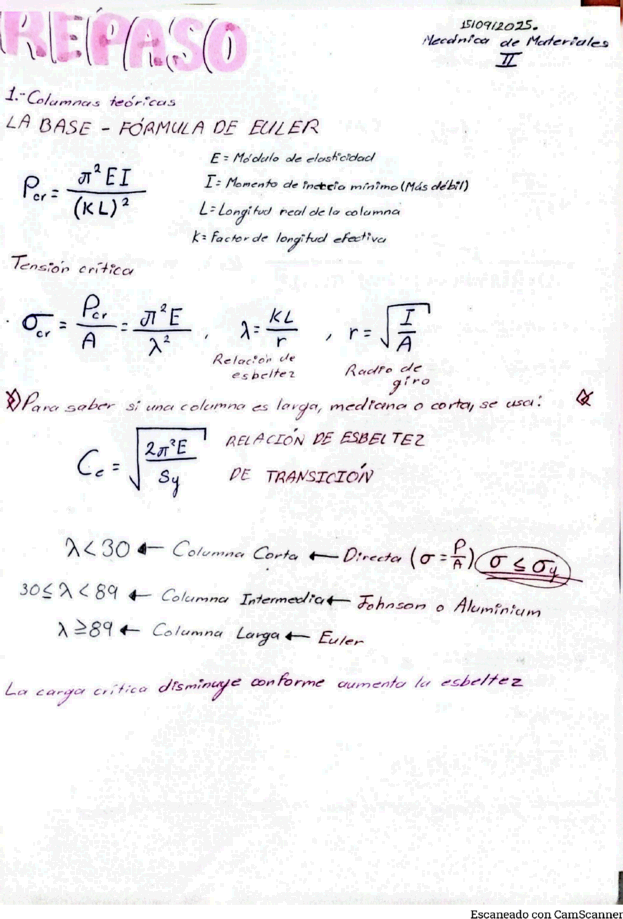 REPASO
15/09/2025.
Mecánica de Materiales
II
1.- Columnas teóricas
LA BASE - FÓRMULA DE EULER
Pcr = π²EI / (KL)²
E = Módulo de elasticidad
I = Momento de inercia mínimo (Más débil)
L = Longitud real de la columna
K = Factor de longitud efectiva
Tensión crítica
σcr = Pcr / A = π²E / λ² , λ = KL / r , r = √(I / A)
Relación de esbeltez
Radio de giro
Para saber si una columna es larga, mediana o corta, se usa:
Cc = √(2π²E / Sy)
RELACIÓN DE ESBELTEZ
DE TRANSICIÓN
λ < 30 ← Columna Corta ← Directa (σ = P/A) σ ≤ σy
30 ≤ λ < 89 ← Columna Intermedia ← Johnson o Aluminium
λ ≥ 89 ← Columna Larga ← Euler
La carga crítica disminuye conforme aumenta la esbeltez
Escaneado con CamScanner